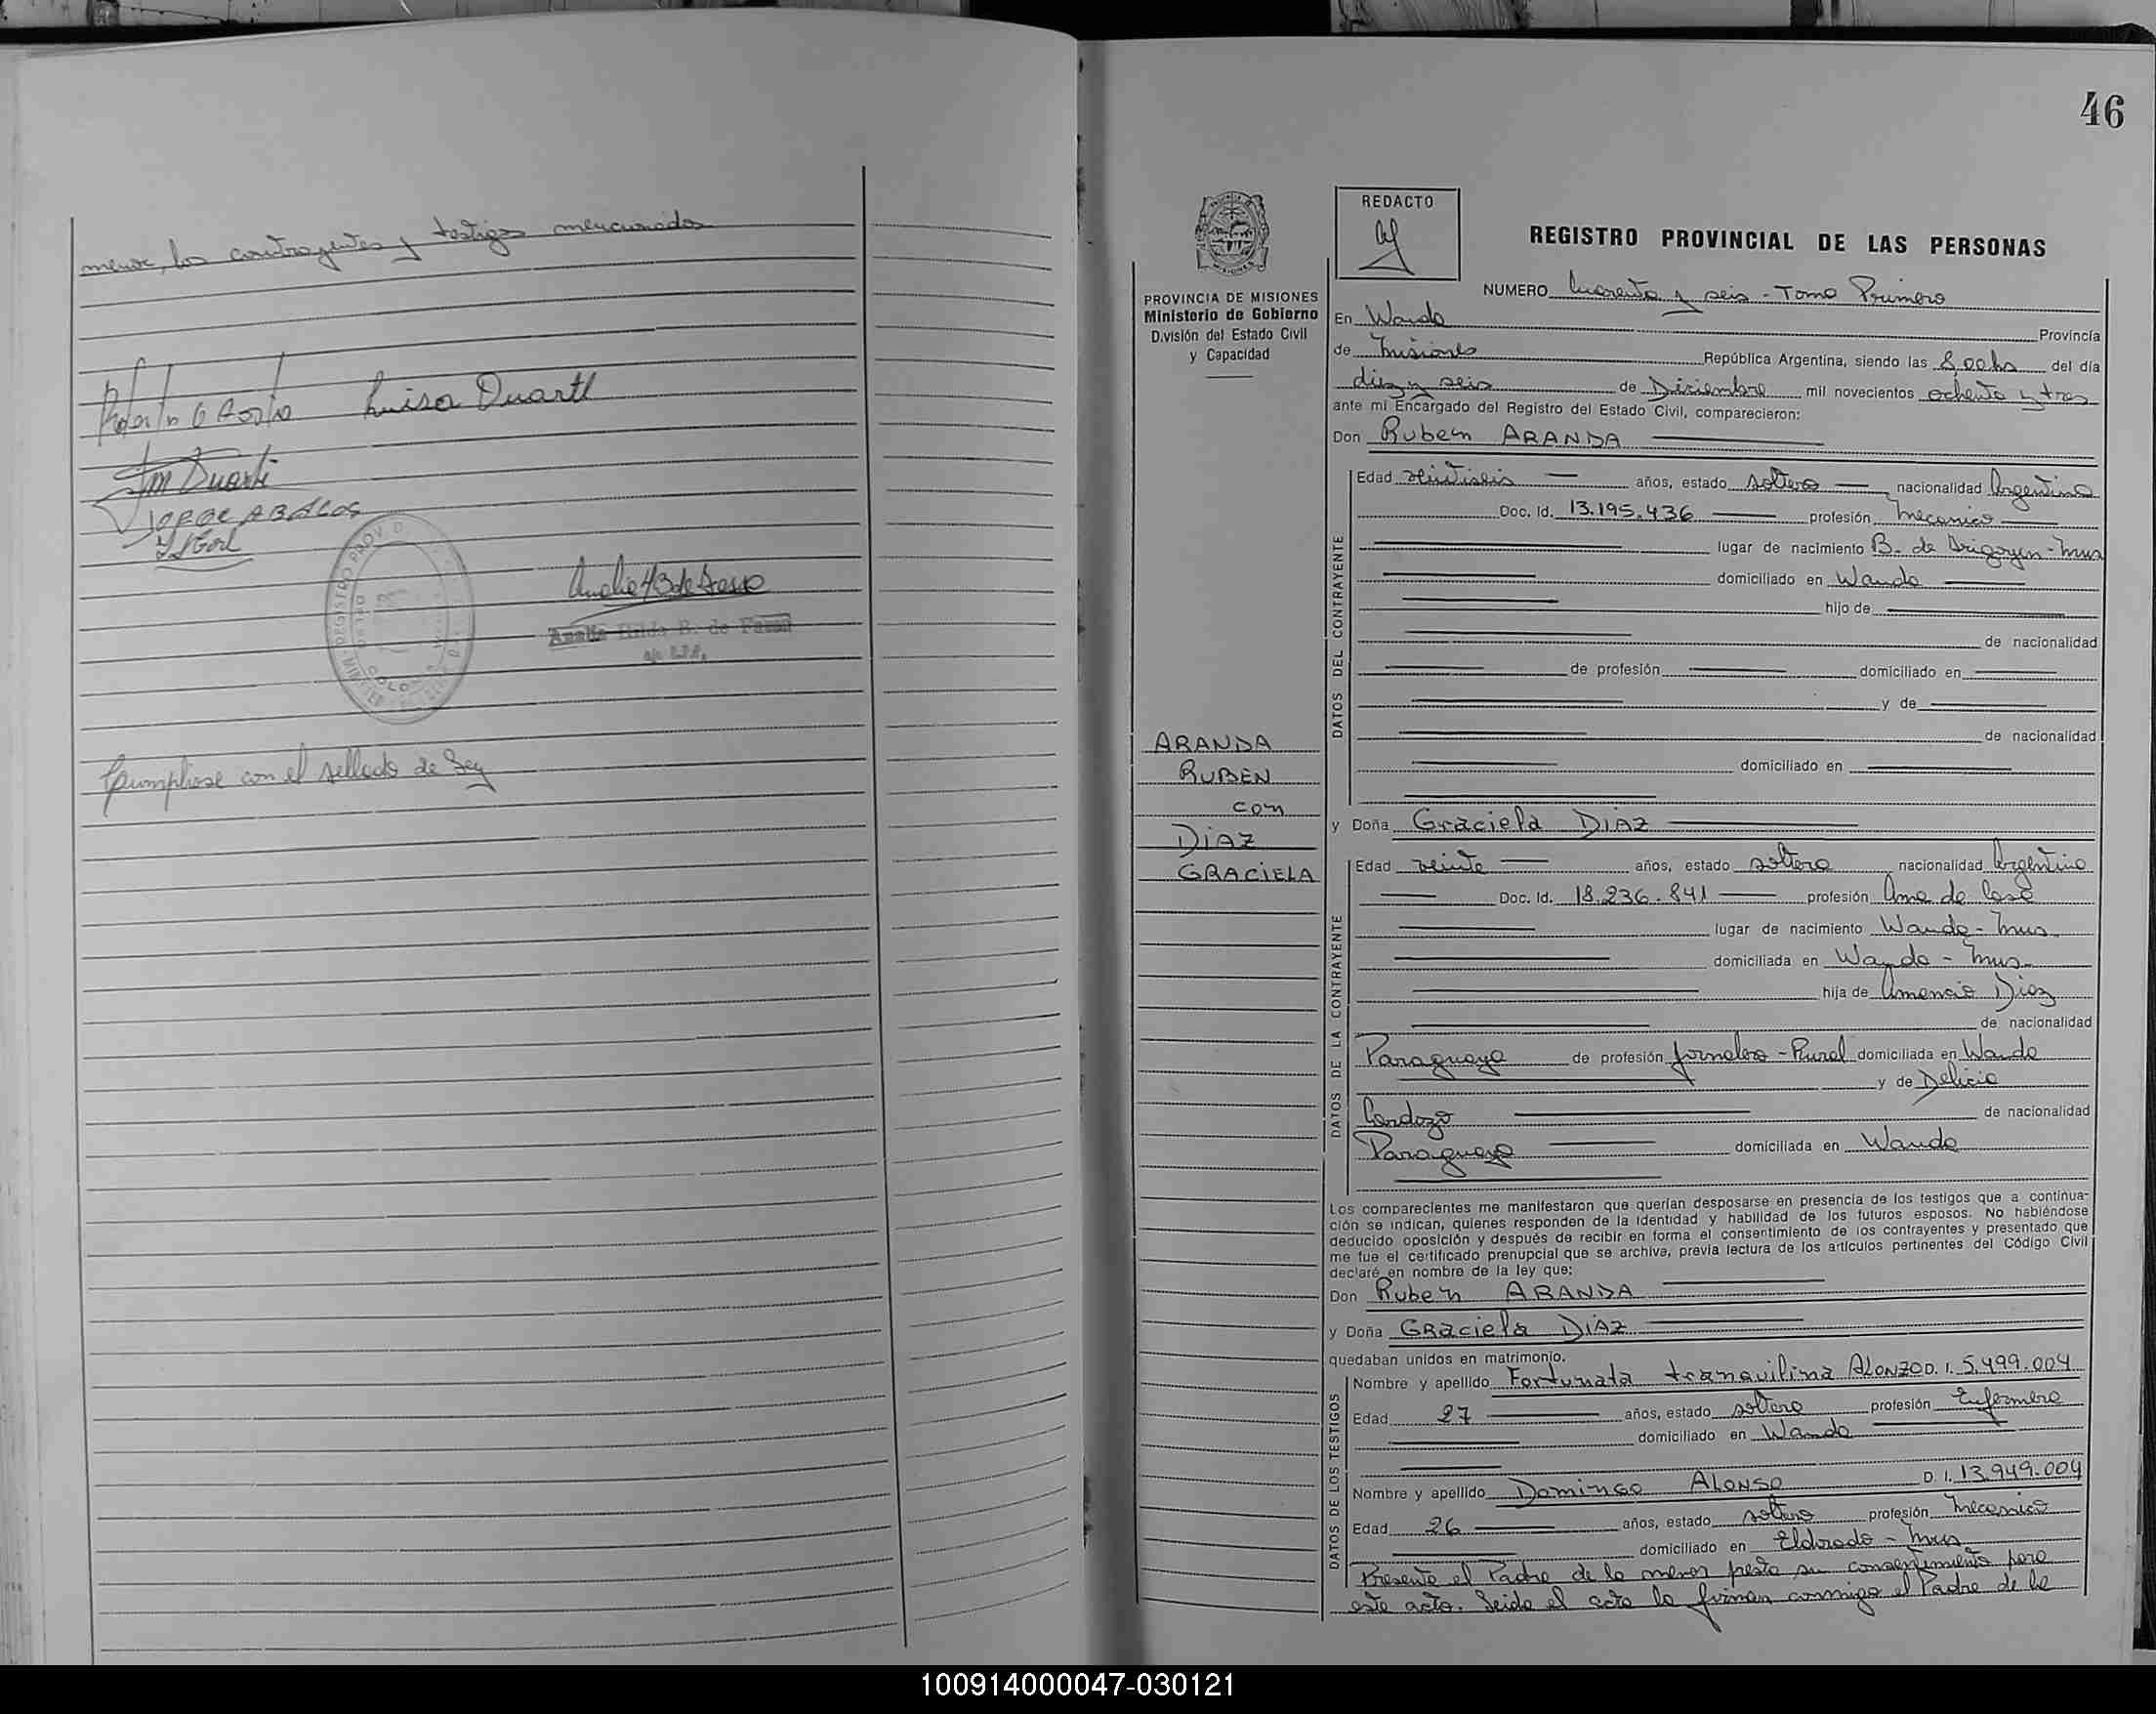 menor, los contrayentes y testigos mencionados
Luisa Duarte
Duarte
JORGE ABALOS
Amalia H B de Fasso
Amalia Hilda B. de
Cumpliose con el sellado de Ley
46
REDACTO
REGISTRO PROVINCIAL DE LAS PERSONAS
PROVINCIA DE MISIONES
Ministerio de Gobierno
División del Estado Civil
y Capacidad
ARANDA
RUBEN
con
DIAZ
GRACIELA
NUMERO Cuarenta y seis - Tomo Primero
En Wanda Provincia
de Misiones República Argentina, siendo las 8,00hs del día
diez y seis de Diciembre mil novecientos ochenta y tres
ante mi Encargado del Registro del Estado Civil, comparecieron:
Don Ruben ARANDA
DATOS DEL CONTRAYENTE
Edad veintiseis años, estado soltero nacionalidad Argentina
Doc. Id. 13.195.436 profesión Mecanico
lugar de nacimiento B. de Irigoyen - Mnes
domiciliado en Wanda
hijo de
de nacionalidad
de profesión domiciliado en
y de
de nacionalidad
domiciliado en
y Doña Graciela DIAZ
DATOS DE LA CONTRAYENTE
Edad veinte años, estado soltera nacionalidad Argentina
Doc. Id. 18.236.841 profesión Ama de Casa
lugar de nacimiento Wanda - Mnes
domiciliada en Wanda - Mnes
hija de Amancio Diaz
de nacionalidad
Paraguaya de profesión Jornalero - Rural domiciliada en Wanda
y de Delicia
Cardozo de nacionalidad
Paraguaya domiciliada en Wanda
Los comparecientes me manifestaron que querían desposarse en presencia de los testigos que a continua-
ción se indican, quienes responden de la identidad y habilidad de los futuros esposos. No habiéndose
deducido oposición y después de recibir en forma el consentimiento de los contrayentes y presentado que
me fue el certificado prenupcial que se archiva, previa lectura de los artículos pertinentes del Código Civil
declaré en nombre de la ley que:
Don Ruben ARANDA
y Doña GRaciela DIAZ
quedaban unidos en matrimonio.
DATOS DE LOS TESTIGOS
Nombre y apellido Fortunata tranquilina ALONZO D. I. 5.499.004
Edad 27 años, estado soltera profesión Enfermera
domiciliado en Wanda
Nombre y apellido Domingo ALONSO D. I. 13.949.004
Edad 26 años, estado soltero profesión Mecanico
domiciliado en Eldorado - Mnes
Presente el Padre de la menor presta su consentimiento para
este acto. Leida el acta la firman conmigo el Padre de la
100914000047-030121